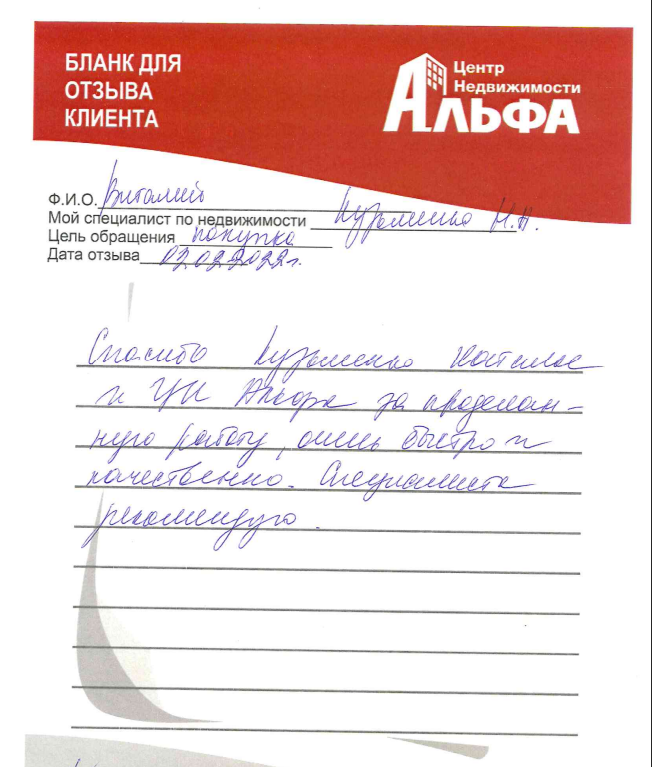 БЛАНК ДЛЯ
ОТЗЫВА
КЛИЕНТА
Центр
Недвижимости
АЛЬФА
Ф.И.О. Виталий
Мой специалист по недвижимости Кузьменко Н.Н.
Цель обращения покупка
Дата отзыва 02.02.2022г.
Спасибо Кузьменко Наталье
и ЦН Альфа за проделан-
ную работу, очень быстро и
качественно. Специалиста
рекомендую.